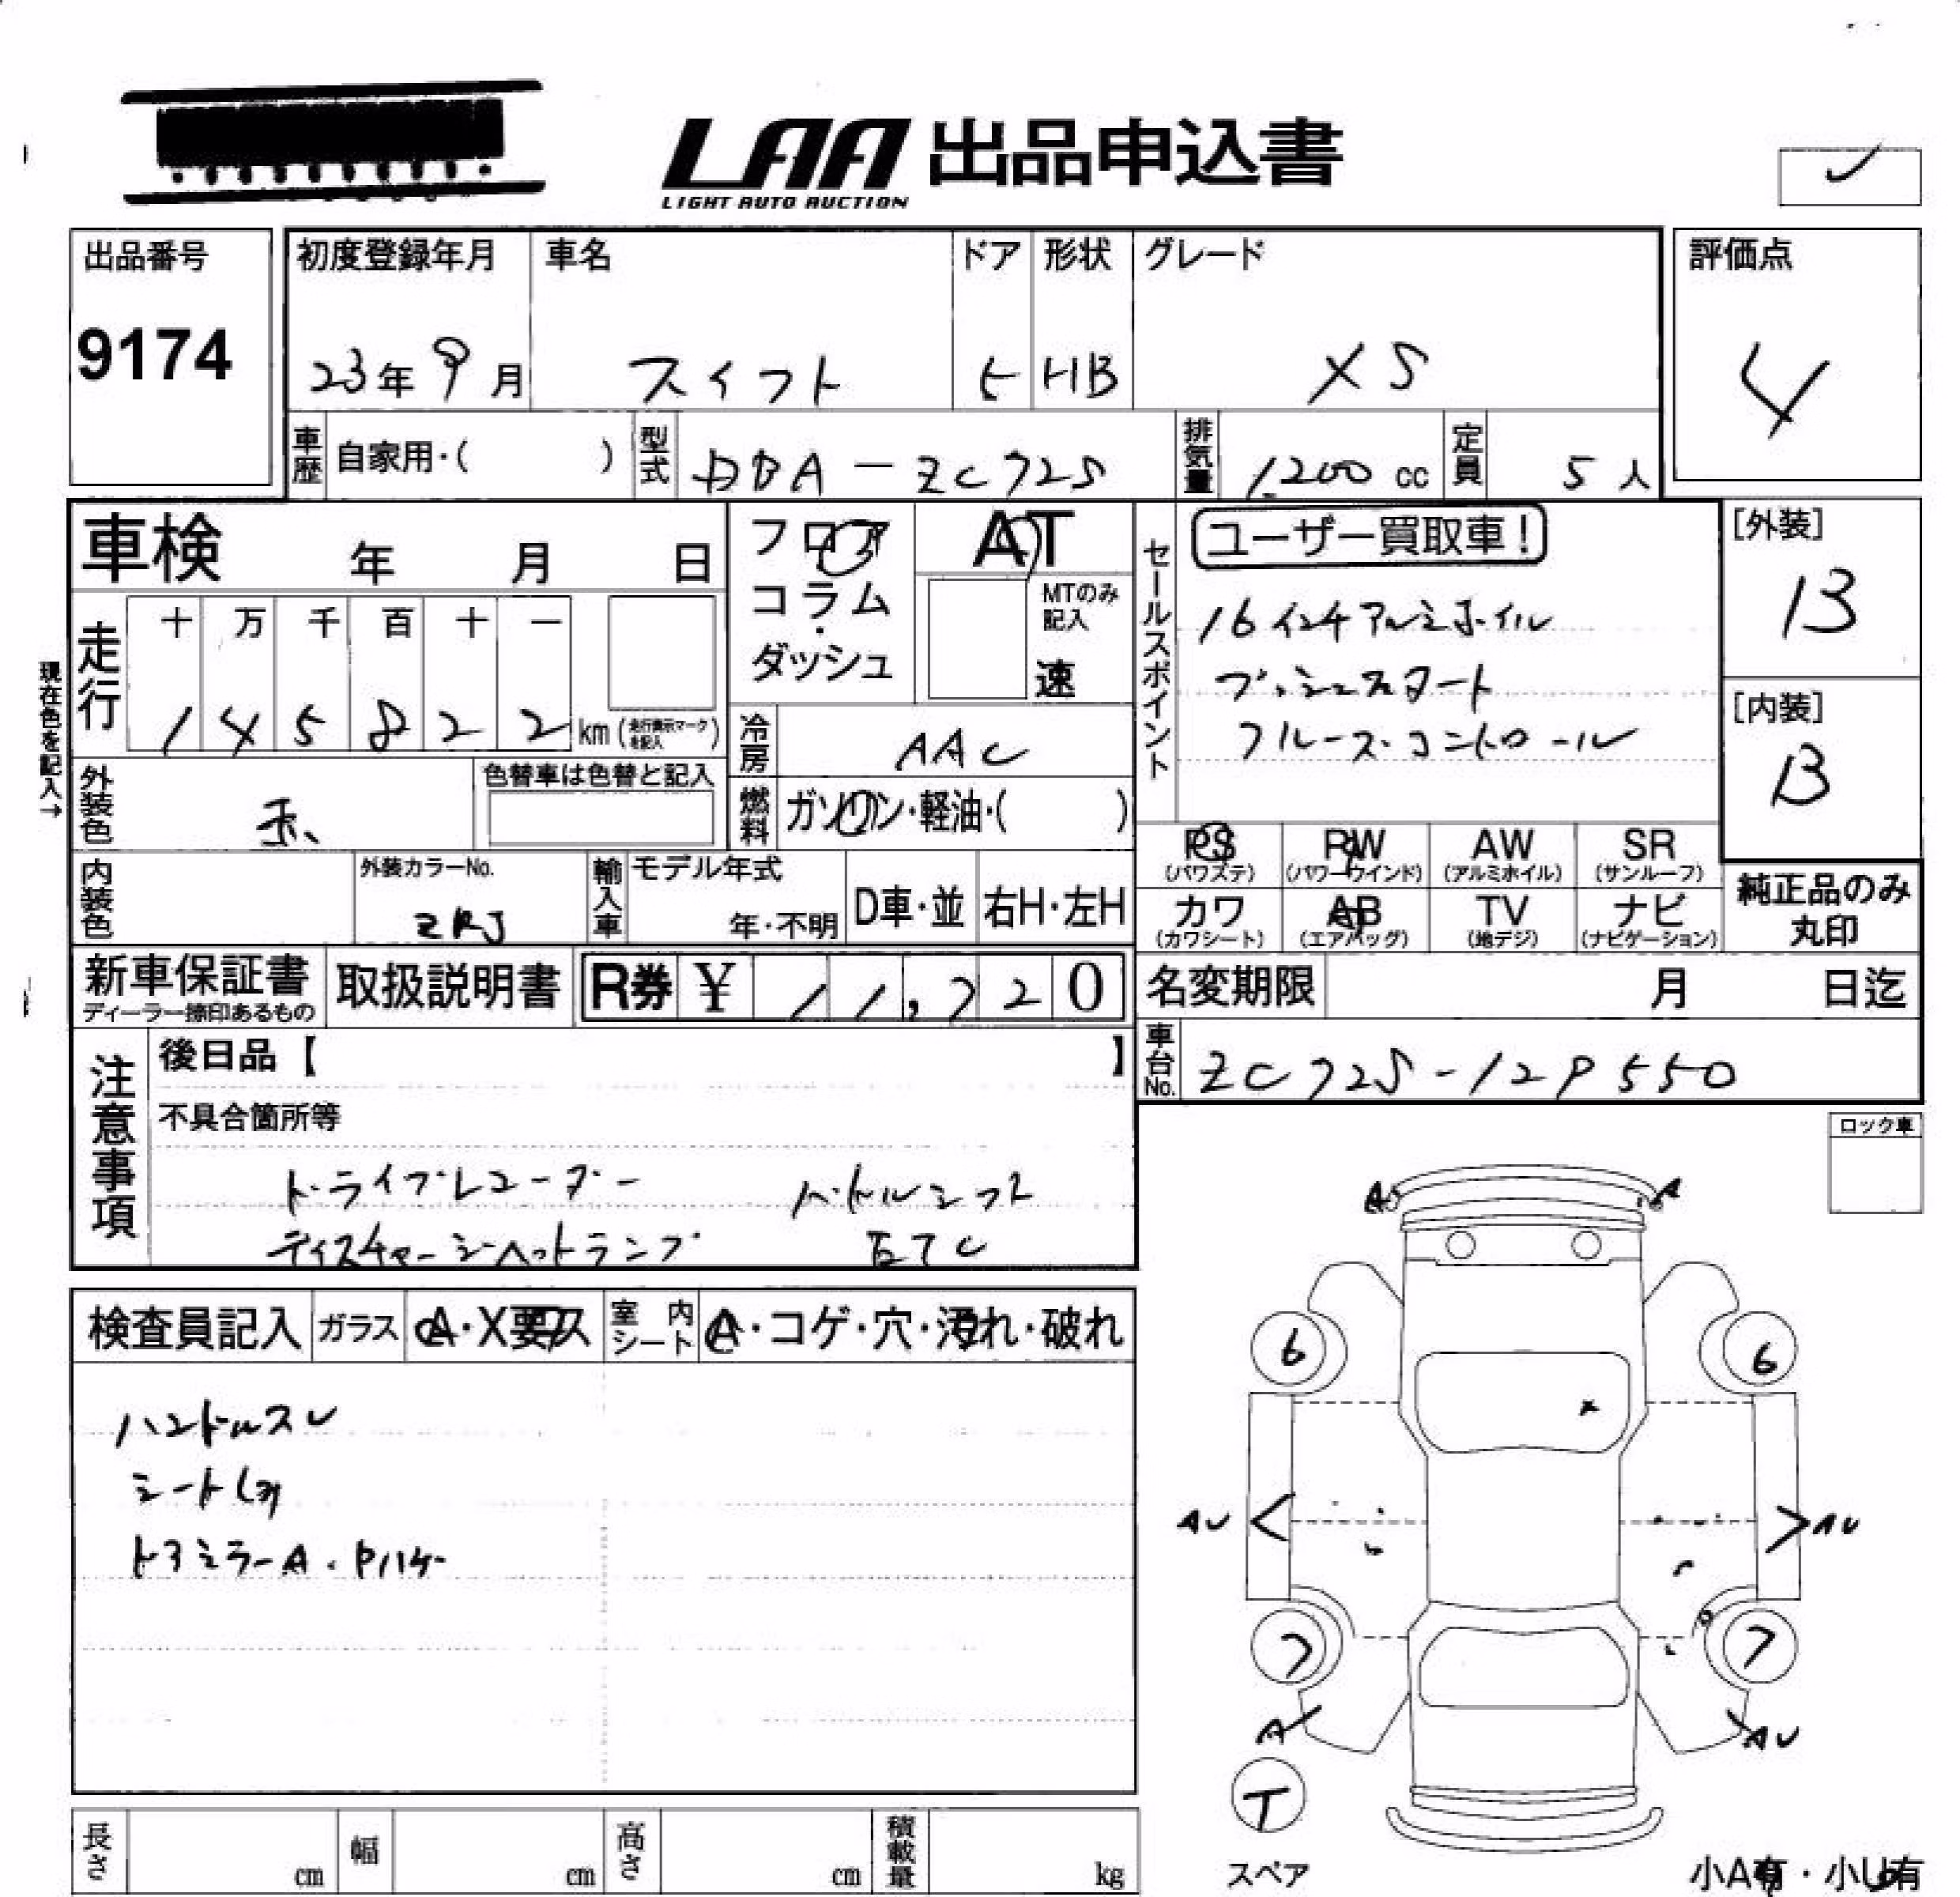 LAA 出品申込書
LIGHT AUTO AUCTION
出品番号
9174
初度登録年月
23年9月
車名
スイフト
ドア
5
形状
HB
グレード
XS
評価点
4
車歴
自家用・( )
型式
DBA-ZC72S
排気量
1,200 cc
定員
5人
車検 年 月 日
フロア
コラム
・
ダッシュ
AT
MTのみ
記入
速
セールスポイント
ユーザー買取車!
16インチアルミホイル
プッシュスタート
クルーズコントロール
[外装]
B
[内装]
B
現在色を記入→
走行
十 万 千 百 十 一
1 4 5 8 2 2 km (走行表示マークを記入)
冷房
AAC
外装色
赤
色替車は色替と記入
燃料
ガソリン・軽油・( )
PS
(パワステ)
PW
(パワーウインド)
AW
(アルミホイル)
SR
(サンルーフ)
内装色
外装カラーNo.
ZRJ
輸入車
モデル年式
年・不明
D車・並
右H・左H
カワ
(カワシート)
AB
(エアバッグ)
TV
(地デジ)
ナビ
(ナビゲーション)
純正品のみ
丸印
新車保証書
ディーラー捺印あるもの
取扱説明書
R券 ¥ 11,720
名変期限 月 日迄
車台No.
ZC72S-129550
注意事項
後日品【 】
不具合箇所等
ドライブレコーダー パドルシフト
ディスチャージヘッドランプ ETC
ロック車
検査員記入
ガラス
A・X要ス
室内シート
A・コゲ・穴・汚れ・破れ
ハンドルスレ
シートシミ
ドアミラーA・Pハゲ
A A
6 6
x
AU AU
7 7
A AU
T
スペア
小A有・小U有
長さ cm
幅 cm
高さ cm
積載量 kg